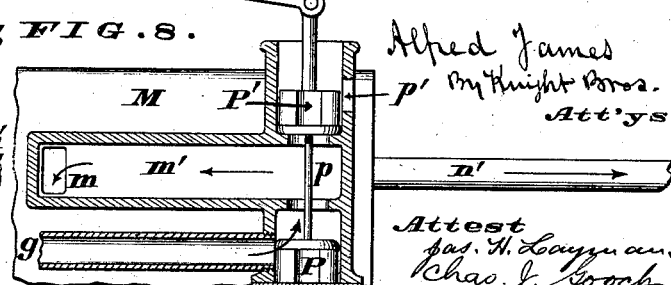 FIG. 8.
Alfred James
By Knight Bros.
Att'ys
M
P'
p'
m
m'
p
n'
g
P
Attest
Jas. H. Layman.
Chas. J. Gooch